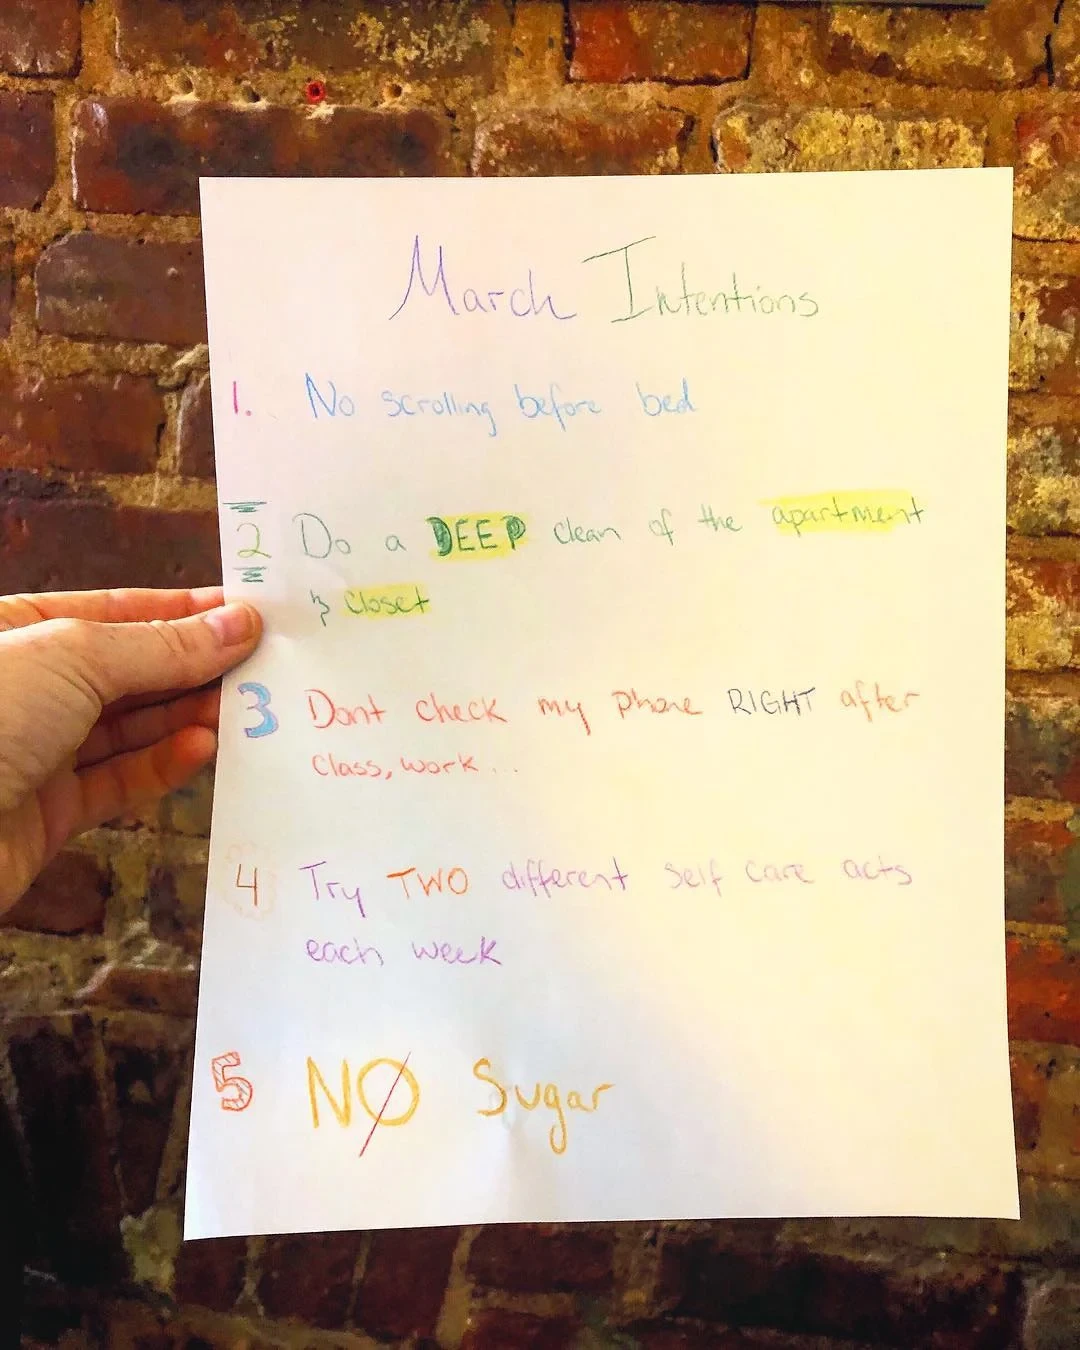 March Intentions
1. No scrolling before bed
2 Do a DEEP clean of the apartment
& closet
3 Dont check my phone RIGHT after
class, work...
4 Try TWO different self care acts
each week
5 NO Sugar